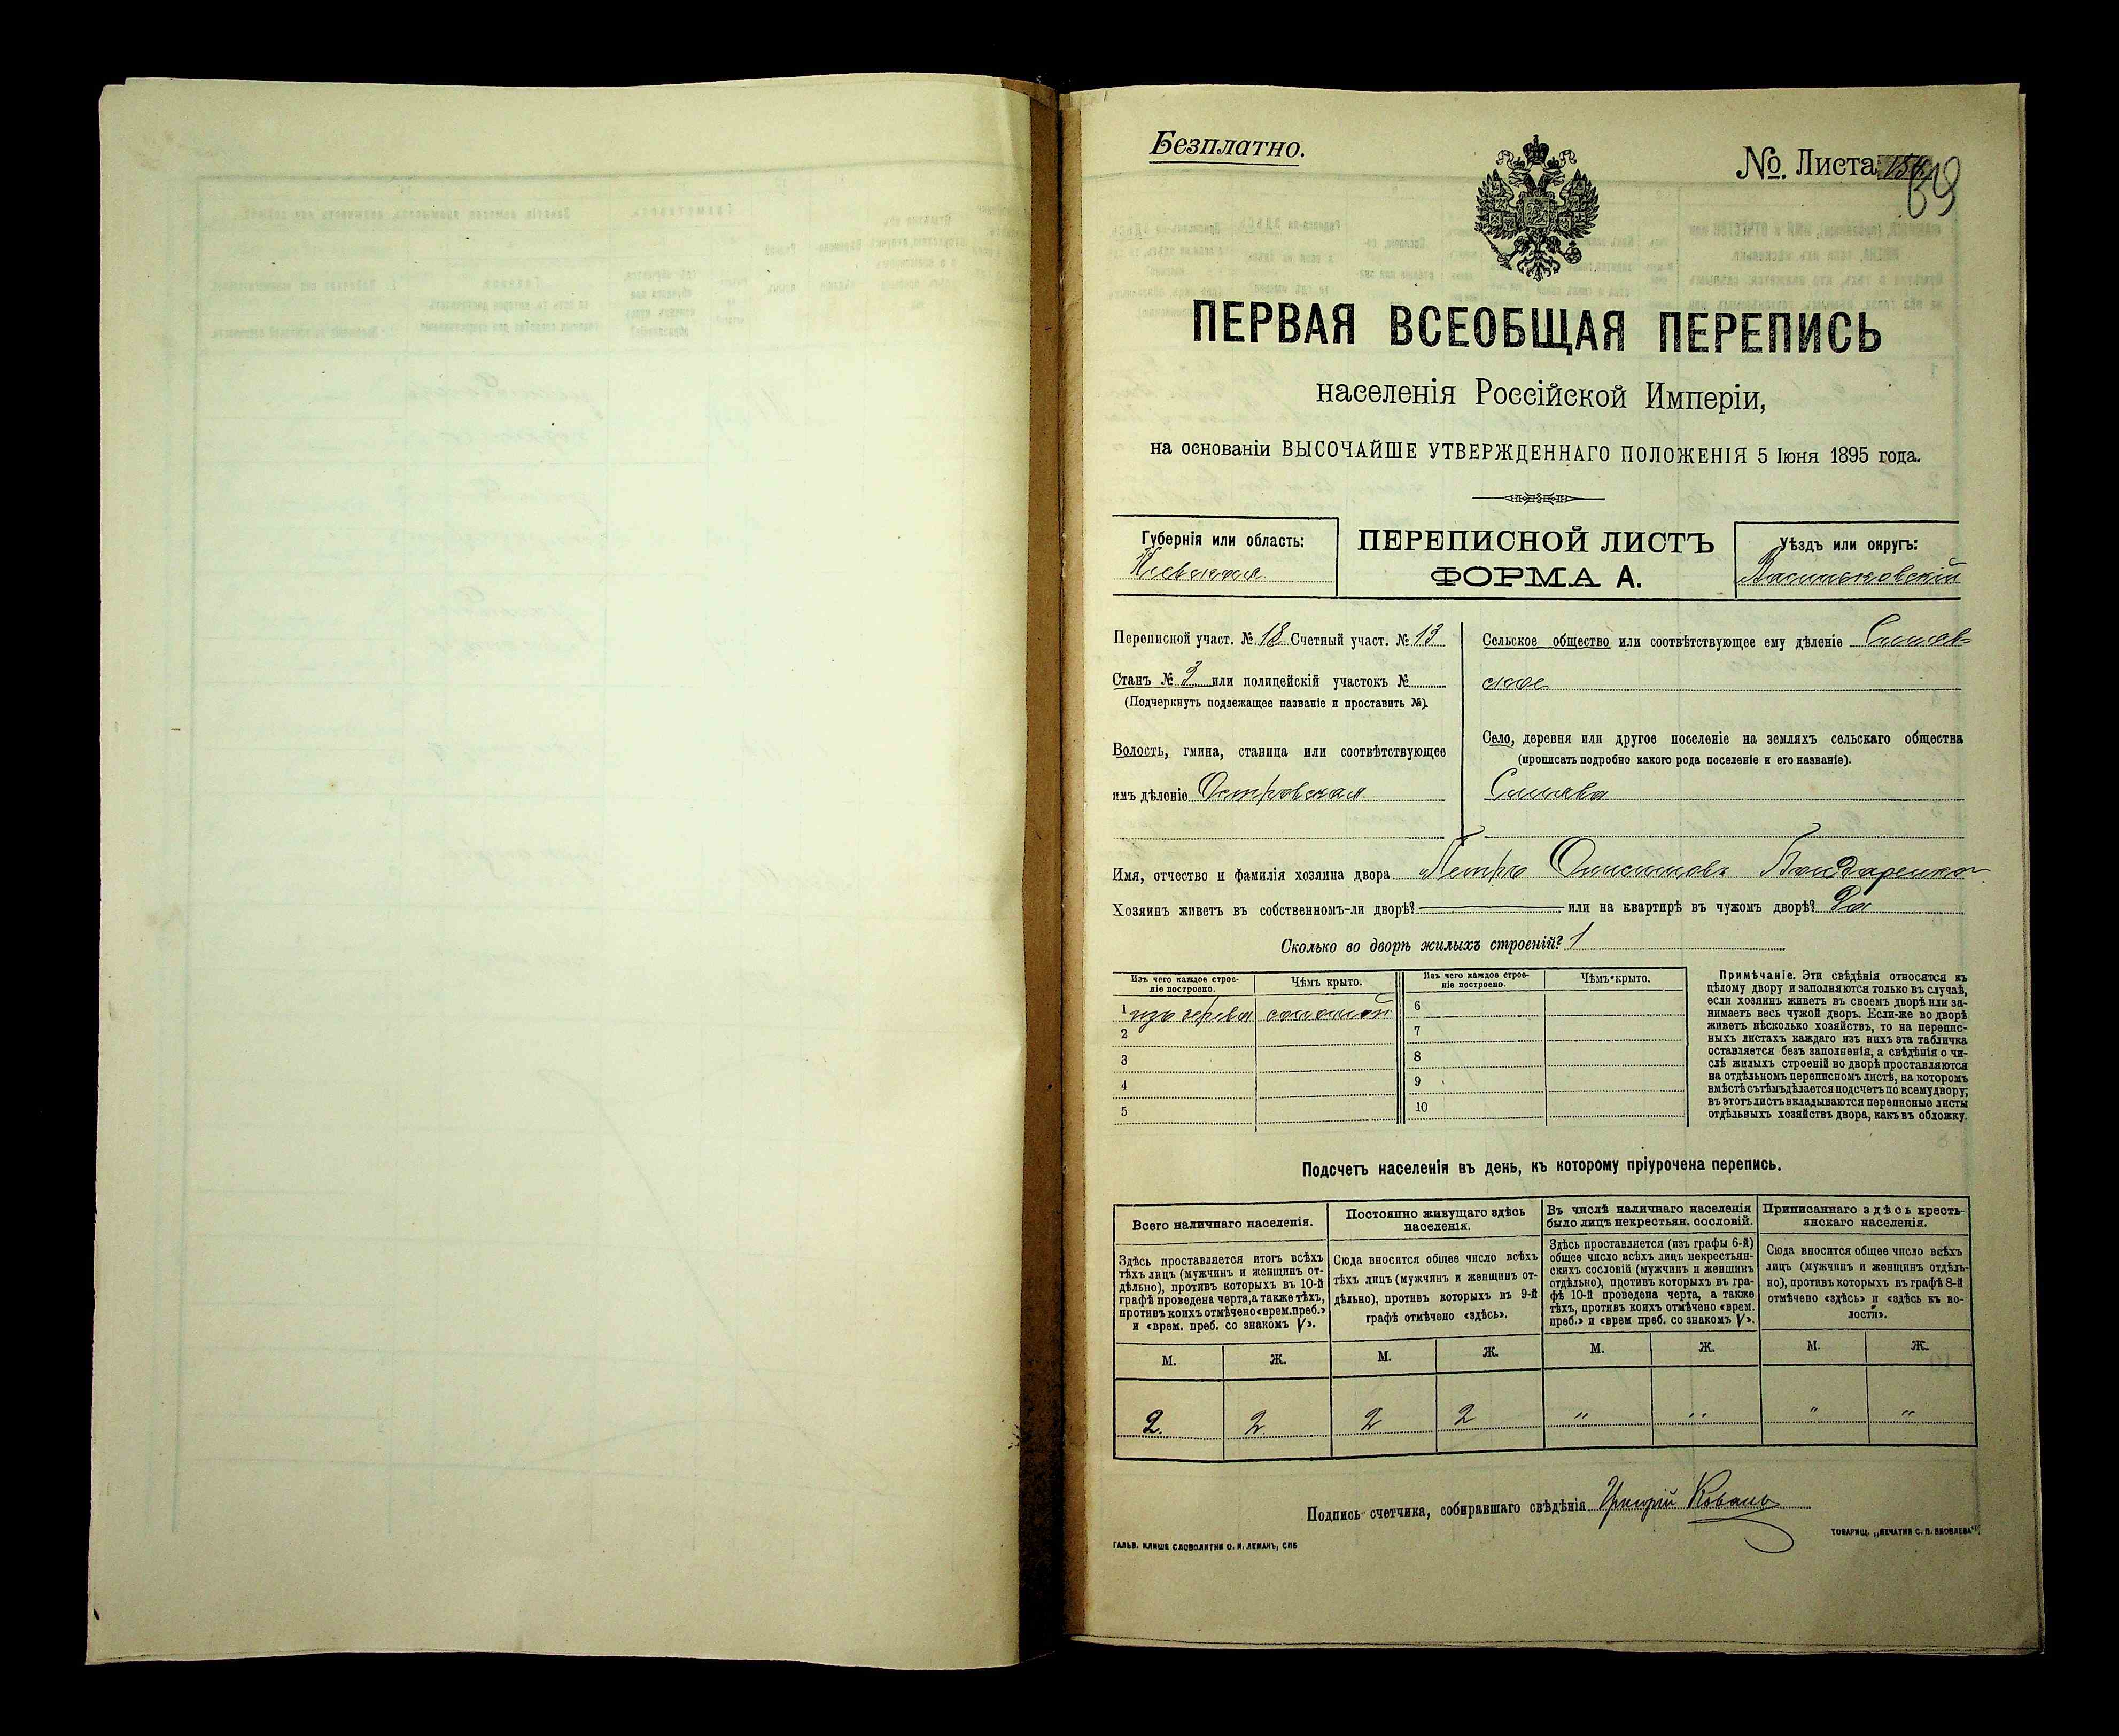 Безплатно.
№. Листа
69
ПЕРВАЯ ВСЕОБЩАЯ ПЕРЕПИСЬ
населенія Россійской Имперіи,
на основаніи ВЫСОЧАЙШЕ УТВЕРЖДЕННАГО ПОЛОЖЕНІЯ 5 Іюня 1895 года.
Губернія или область:
Кіевская
ПЕРЕПИСНОЙ ЛИСТЪ
ФОРМА А.
Уѣздъ или округъ:
Васильковскій
Переписной участ. № 18 Счетный участ. № 13
Станъ № 3 или полицейскій участокъ №
(Подчеркнуть подлежащее названіе и проставить №).
Волость, гмина, станица или соотвѣтствующее
имъ дѣленіе Островская
Сельское общество или соотвѣтствующее ему дѣленіе
ское
Село, деревня или другое поселеніе на земляхъ сельскаго общества
(прописать подробно какого рода поселеніе и его названіе).
Имя, отчество и фамилія хозяина двора Петръ Онисимовъ Бондаренко
Хозяинъ живетъ въ собственномъ-ли дворѣ? — или на квартирѣ въ чужомъ дворѣ? Да
Сколько во дворѣ жилыхъ строеній? 1
Изъ чего каждое строе-
ніе построено.
Чѣмъ крыто.
1 изъ дерева соломой
2
3
4
5
Изъ чего каждое строе-
ніе построено.
Чѣмъ крыто.
6
7
8
9
10
Примѣчаніе. Эти свѣдѣнія относятся къ
цѣлому двору и заполняются только въ случаѣ,
если хозяинъ живетъ въ своемъ дворѣ или за-
нимаетъ весь чужой дворъ. Если-же во дворѣ
живетъ нѣсколько хозяйствъ, то на перепис-
ныхъ листахъ каждаго изъ нихъ эта табличка
оставляется безъ заполненія, а свѣдѣнія о чи-
слѣ жилыхъ строеній во дворѣ проставляются
на отдѣльномъ переписномъ листѣ, на которомъ
вмѣстѣ съ тѣмъ дѣлается подсчетъ по всему двору;
въ этотъ листъ вкладываются переписные листы
отдѣльныхъ хозяйствъ двора, какъ въ обложку.
Подсчетъ населенія въ день, къ которому пріурочена перепись.
Всего наличнаго населенія.
Здѣсь проставляется итогъ всѣхъ
тѣхъ лицъ (мужчинъ и женщинъ от-
дѣльно), противъ которыхъ въ 10-й
графѣ проведена черта, а также тѣхъ,
противъ коихъ отмѣчено «врем. преб.»
и «врем. преб. со знакомъ V».
М. Ж.
2. 2.
Постоянно живущаго здѣсь
населенія.
Сюда вносится общее число всѣхъ
тѣхъ лицъ (мужчинъ и женщинъ от-
дѣльно), противъ которыхъ въ 9-й
графѣ отмѣчено «здѣсь».
М. Ж.
2 2
Въ числѣ наличнаго населенія
было лицъ некрестьян. сословій.
Здѣсь проставляется (изъ графы 6-й)
общее число всѣхъ лицъ некрестьян-
скихъ сословій (мужчинъ и женщинъ
отдѣльно), противъ которыхъ въ гра-
фѣ 10-й проведена черта, а также
тѣхъ, противъ коихъ отмѣчено «врем.
преб.» и «врем преб. со знакомъ V».
М. Ж.
" "
Приписаннаго здѣсь кресть-
янскаго населенія.
Сюда вносится общее число всѣхъ
лицъ (мужчинъ и женщинъ отдѣль-
но), противъ которыхъ въ графѣ 8-й
отмѣчено «здѣсь» и «здѣсь къ во-
лости».
М. Ж.
" "
Подпись счетчика, собиравшаго свѣдѣнія Григорій Коваль
ГАЛЬВ. КЛИШЕ СЛОВОЛИТНИ О. И. ЛЕМАНЪ, СПБ
ТОВАРИЩ. „ПЕЧАТНЯ С. П. ЯКОВЛЕВА".